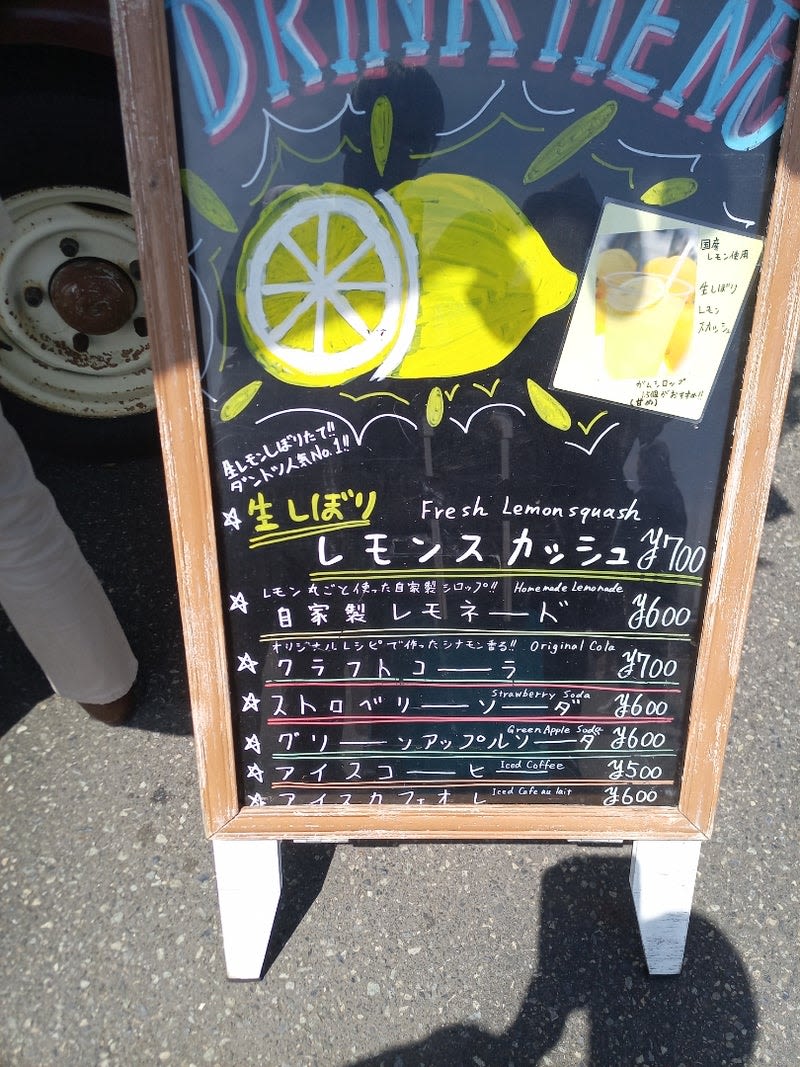 DRINK MENU
国産
レモン使用
生しぼり
レモン
スカッシュ
ガムシロップ
1.5個がおすすめ!!
(甘め)
生レモンしぼりたて!!
ダントツ人気No.1!!
☆ 生しぼり Fresh Lemonsquash
レモンスカッシュ ¥700
レモン丸ごと使った自家製シロップ!! Homemade Lemonade
☆ 自家製レモネード ¥600
オリジナルレシピで作ったシナモン香る!! Original Cola
☆ クラフトコーラ ¥700
Strawberry Soda
☆ ストロベリーソーダ ¥600
Green Apple Soda
☆ グリーンアップルソーダ ¥600
☆ アイスコーヒー Iced Coffee ¥500
☆ アイスカフェオレ Iced Cafe au lait ¥600